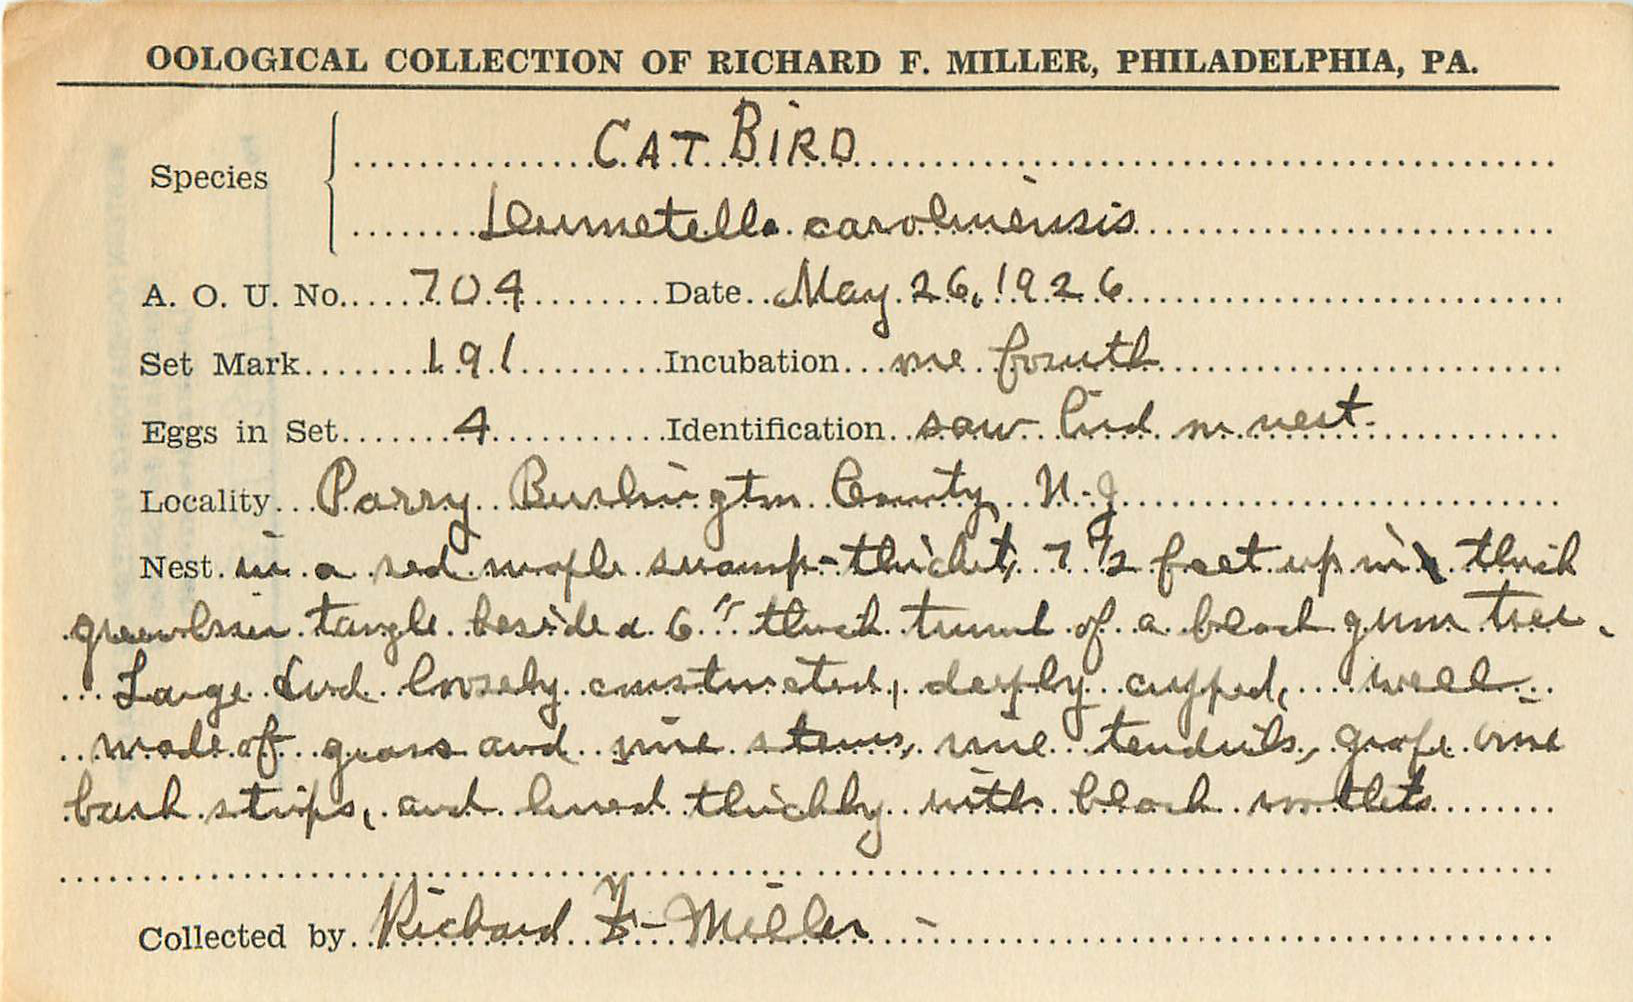 OOLOGICAL COLLECTION OF RICHARD F. MILLER, PHILADELPHIA, PA.
Species
CAT BIRD
Dumetella carolinensis
A. O. U. No. 704 Date May 26, 1926
Set Mark 191 Incubation one fourth
Eggs in Set 4 Identification saw bird on nest.
Locality Parry Burlington County N.J
Nest in a red maple swamp-thicket, 7 1/2 feet up in thick
greenbrier tangle beside a 6" thick trunk of a black gum tree.
Large and loosely constructed, deeply cupped, well
made of grass and vine stems, vine tendrils, grape vine
bark strips, and lined thickly with black rootlets
Collected by Richard F. Miller